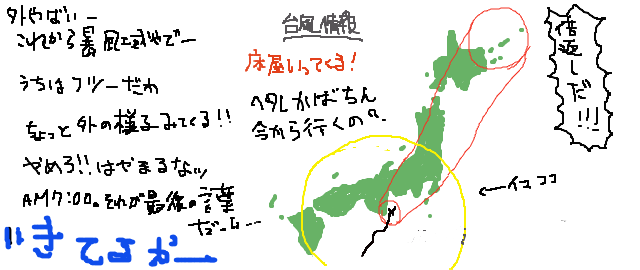 外やばいー
これから暴風域やでー
うちはフツーだわ
ちょっと外の様子みてくる!!
やめろ!!はやまるなッ
AM7:00。それが最後の言葉
だった…
いきてるかー
台風情報
床屋いってくる!
ヘタレかばちん
今から行くの?
倍返しだ!!!
←イマココ